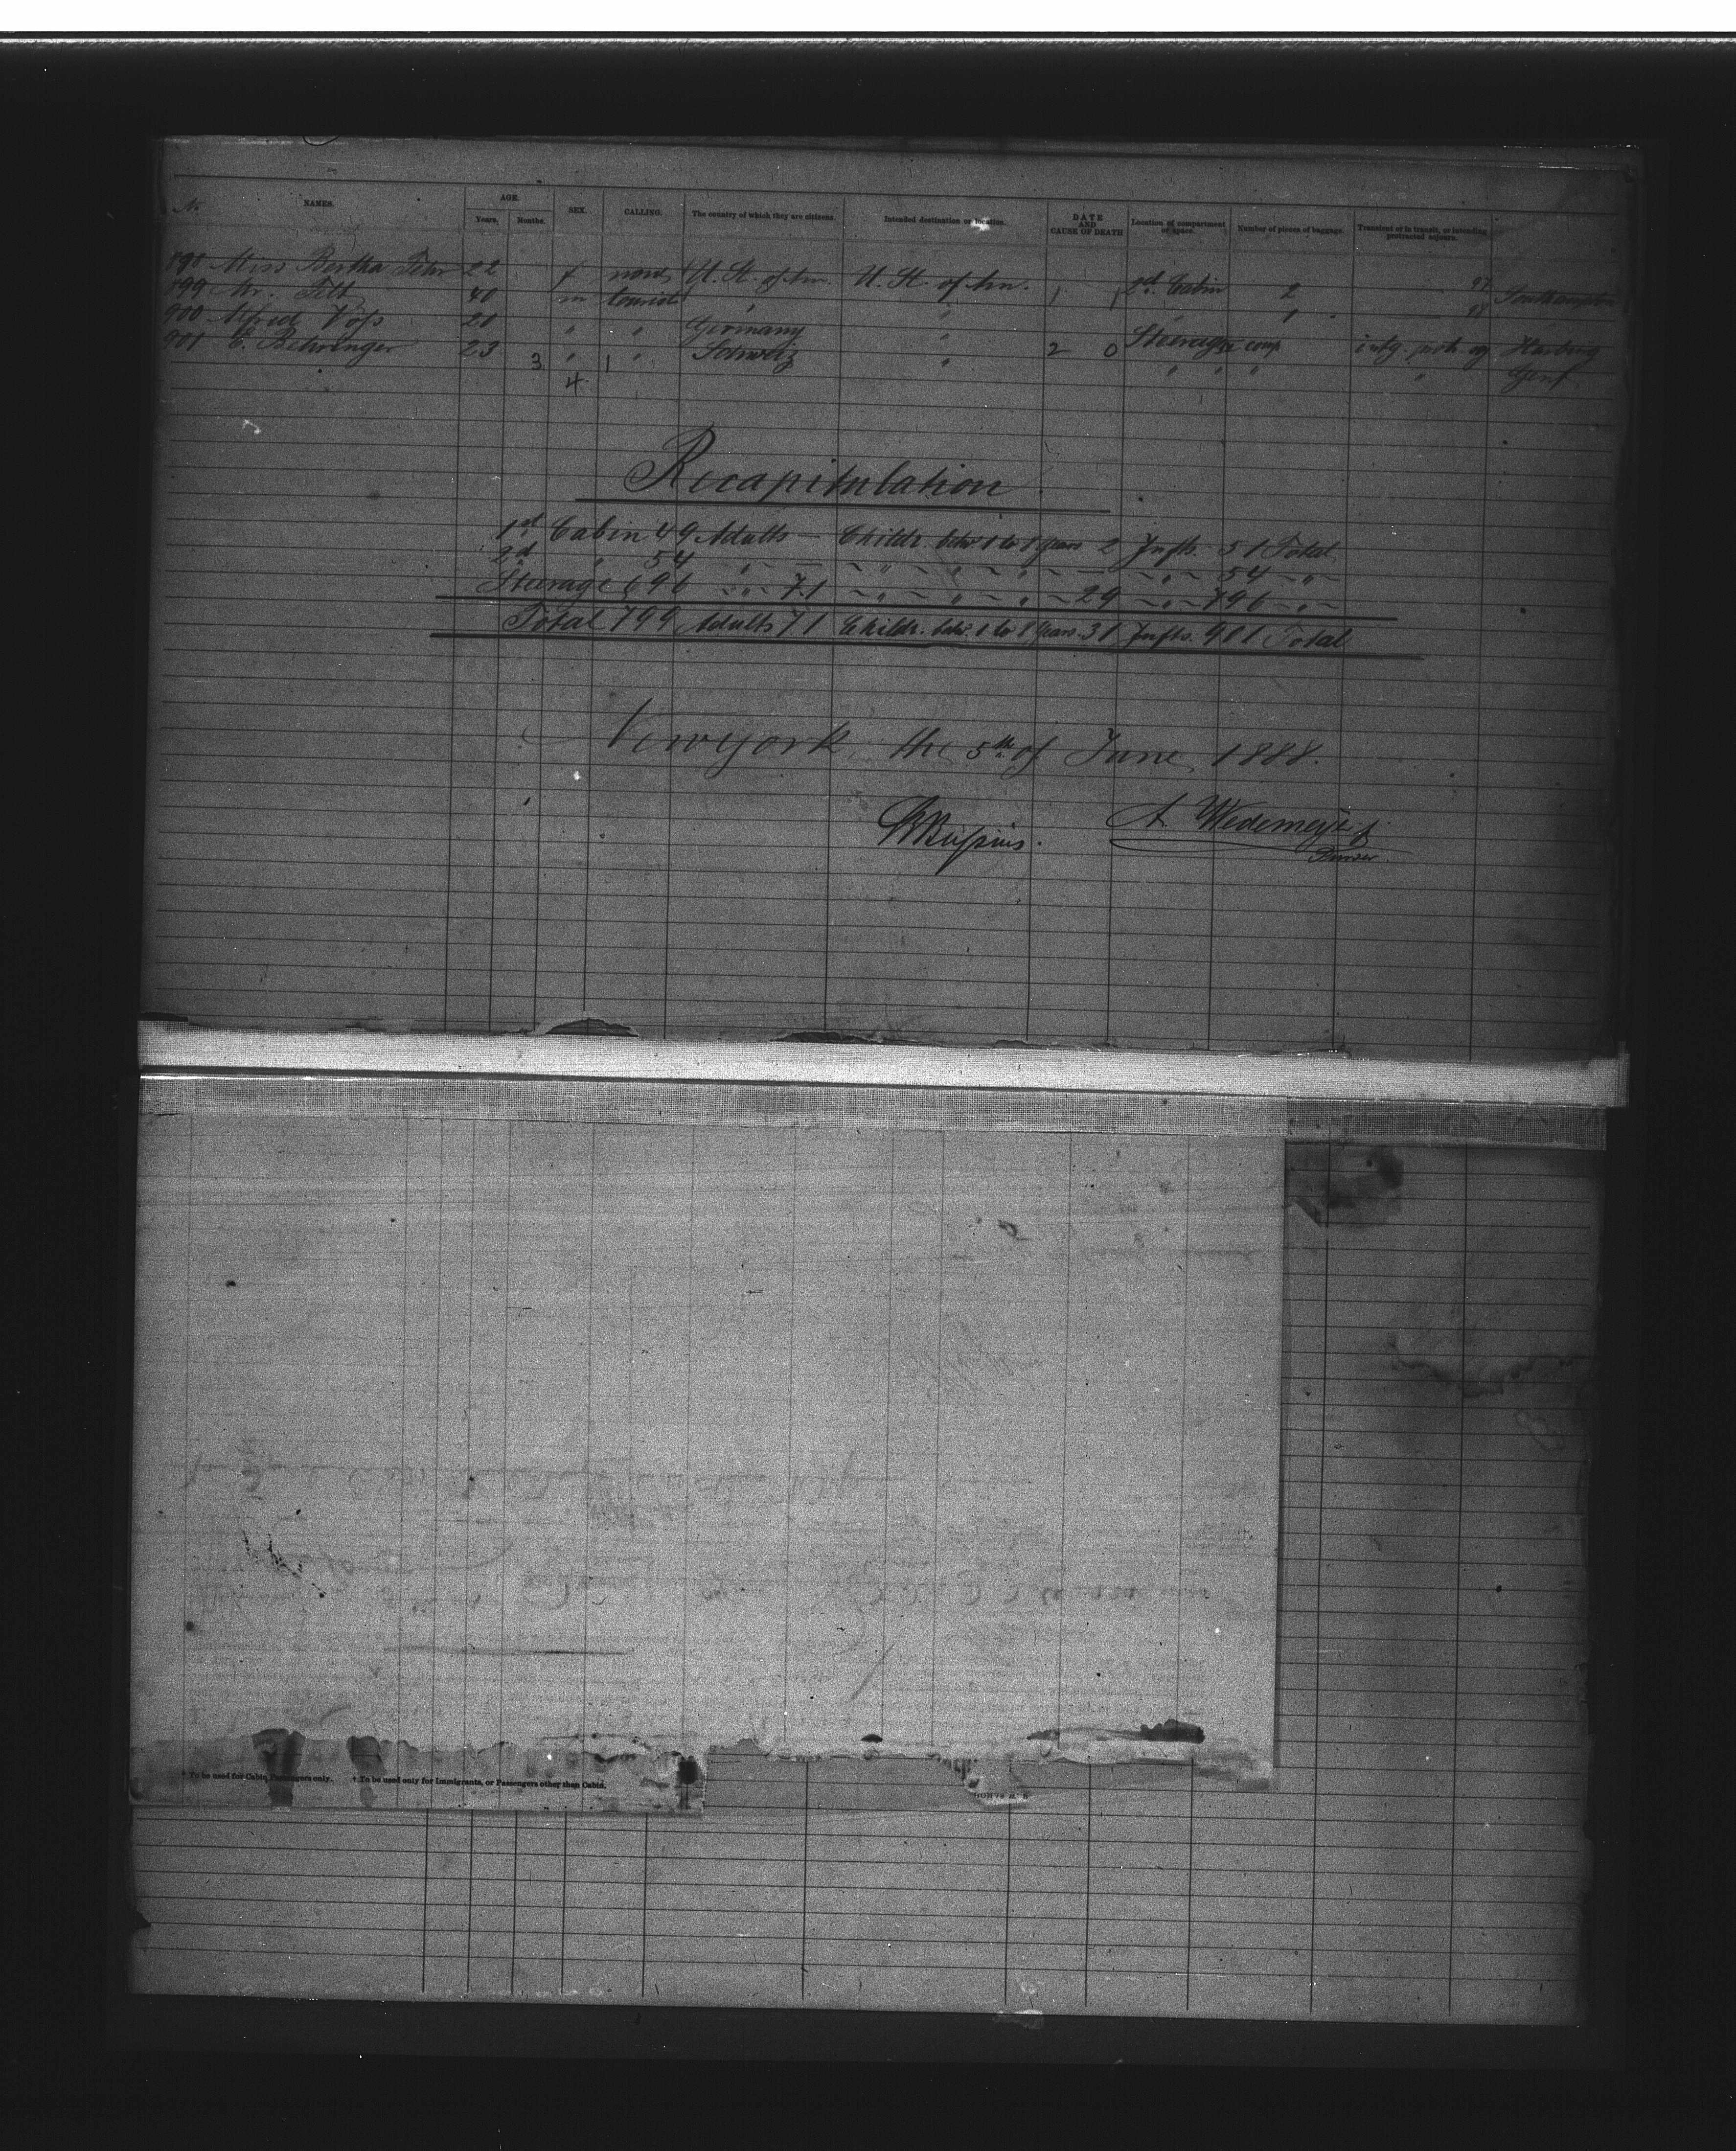 No. NAMES. AGE. Years. Months. SEX. CALLING. The country of which they are citizens. Intended destination or location. DATE AND CAUSE OF DEATH Location of compartment or space. Number of pieces of baggage. Transient or in transit, or intending protracted sojourn.
898 Miss Bertha Fehr 22 f none U. St. of Am. U. St. of Am. 2d. Cabin 2 97 Southampton
899 Mr. Felt 40 m tourist " " 1 1 " 1 98
900 Alfred Voß 20 " " Germany " Steerage comp Harburg
901 C. Behringer 23 " " Schweiz " 2 0 " " " " Genf
3 1
4
Recapitulation
1st Cabin 49 Adults — Childr. betw 1 to 8 years 2 Infts. 51 Total
2d " 54 " — " " " — " 54 "
Steerage 696 " 71 " " " 29 " 796 "
Total 799 Adults 71 Childr. betw. 1 to 8 years. 31 Infts. 901 Total
Newyork, the 5th of June, 1888.
A. Wedemeyer
Purser.
* To be used for Cabin Passengers only. † To be used only for Immigrants, or Passengers other than Cabin.